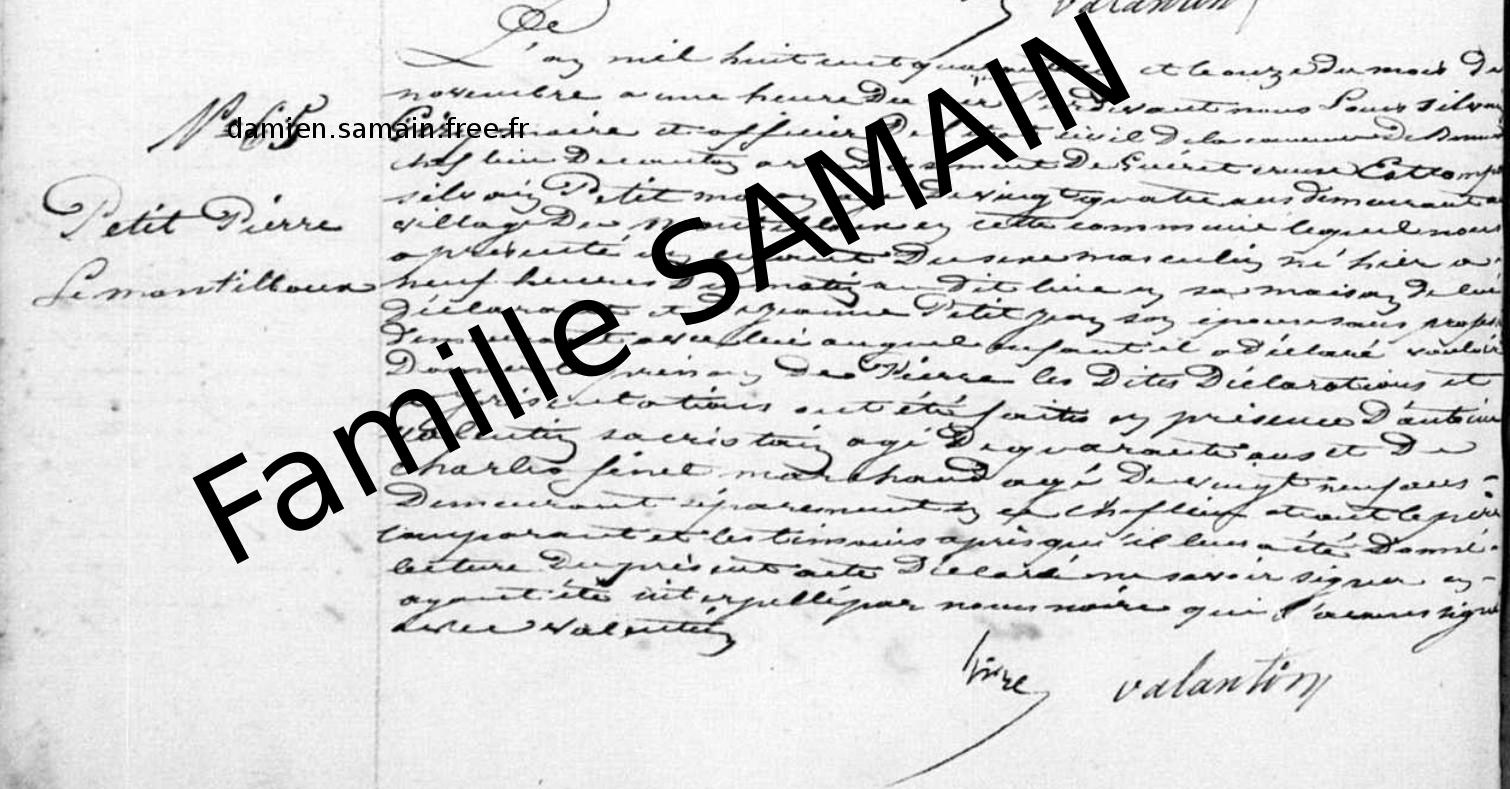 valantin
L'an mil huit cent quarante et le onze du mois de
novembre a une heure du soir Pardevant nous Louis silvain
maire et officier De l'état civil De la commune De Bonnat
N° 65
damien.samain.free.fr
chef lieu De canton arrondissement De Gueret creuse Est comparu
silvain Petit maçon agé De vingt quatre ans demeurant au
Petit Pierre
village De Montilloux en cette commune lequel nous
a présenté un enfant Du sexe masculin né hier a
Le montilloux
neuf heures Du matin au Dit lieu en sa maison De lui
Déclarant et De Jeanne Petit jean son épouse sans profes
Demeurant avec lui auquel enfant il a Déclaré vouloir
Donner le prénom De Pierre les Dites Déclarations et
présentations ont été faites en présence D'antoine
valentin sacristain agé De quarante ans et De
charles finet marchand agé De vingt neuf ans
Demeurant séparement en ce chef lieu et ont le père
comparant et les témoins après qu'il leur a été Donné
lecture Du présent acte Déclaré ne savoir signer en
ayant été interpellé par nous maire qui l'avons signé
avec valentin
valantin
Famille SAMAIN